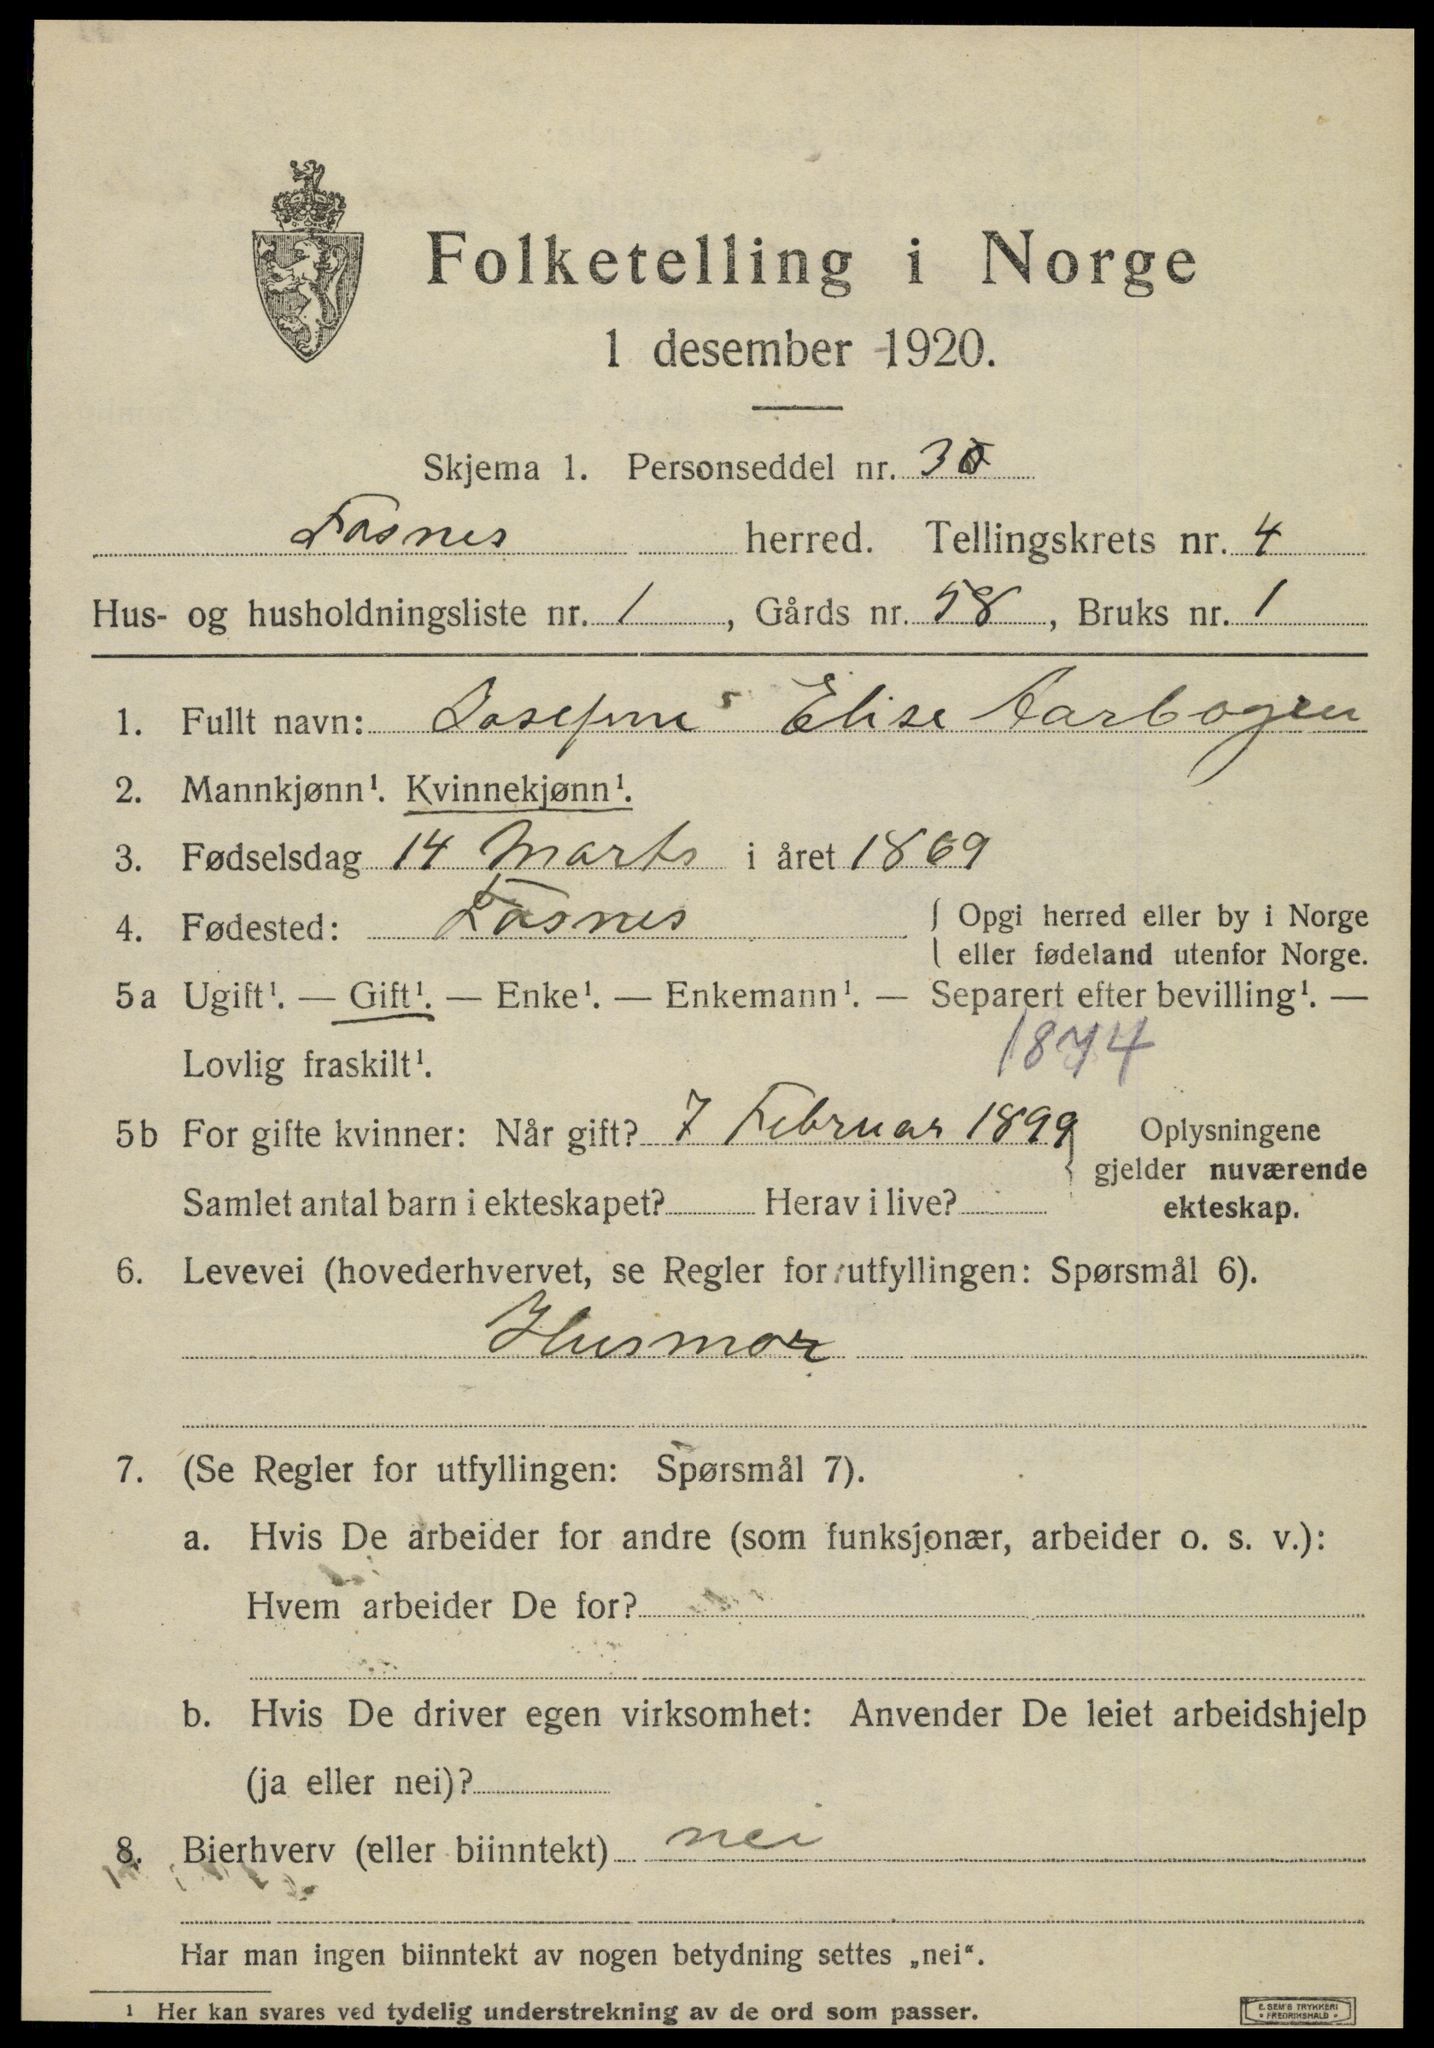 Folketelling i Norge
1 desember 1920.
Skjema 1. Personseddel nr. 30
Fosnes herred. Tellingskrets nr. 4
Hus- og husholdningsliste nr. 1, Gårds nr. 58, Bruks nr. 1
1. Fullt navn: Josefine Elise Aarbogen
2. Mannkjønn¹. Kvinnekjønn¹.
3. Fødselsdag 14 Marts i året 1869
4. Fødested: Fosnes { Opgi herred eller by i Norge
eller fødeland utenfor Norge.
5a Ugift¹. — Gift¹. — Enke¹. — Enkemann¹. — Separert efter bevilling¹. —
Lovlig fraskilt¹. 1874
5b For gifte kvinner: Når gift? 7 Februar 1899 { Oplysningene
gjelder nuværende
Samlet antal barn i ekteskapet? Herav i live? ekteskap.
6. Levevei (hovederhvervet, se Regler for utfyllingen: Spørsmål 6).
Husmor
7. (Se Regler for utfyllingen: Spørsmål 7).
a. Hvis De arbeider for andre (som funksjonær, arbeider o. s. v.):
Hvem arbeider De for?
b. Hvis De driver egen virksomhet: Anvender De leiet arbeidshjelp
(ja eller nei)?
8. Bierhverv (eller biinntekt) nei
Har man ingen biinntekt av nogen betydning settes „nei“.
¹ Her kan svares ved tydelig understrekning av de ord som passer.
E. SEM'S TRYKKERI
FREDRIKSHALD